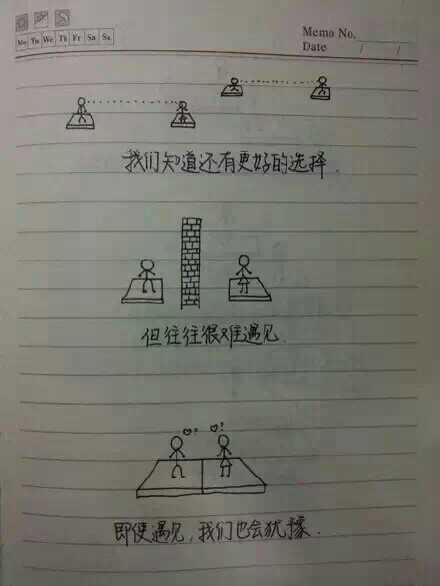 Memo No.
Mo Tu We Th Fr Sa Su
Date / /
我们知道还有更好的选择.
但往往很难遇见.
即使遇见,我们也会犹豫.